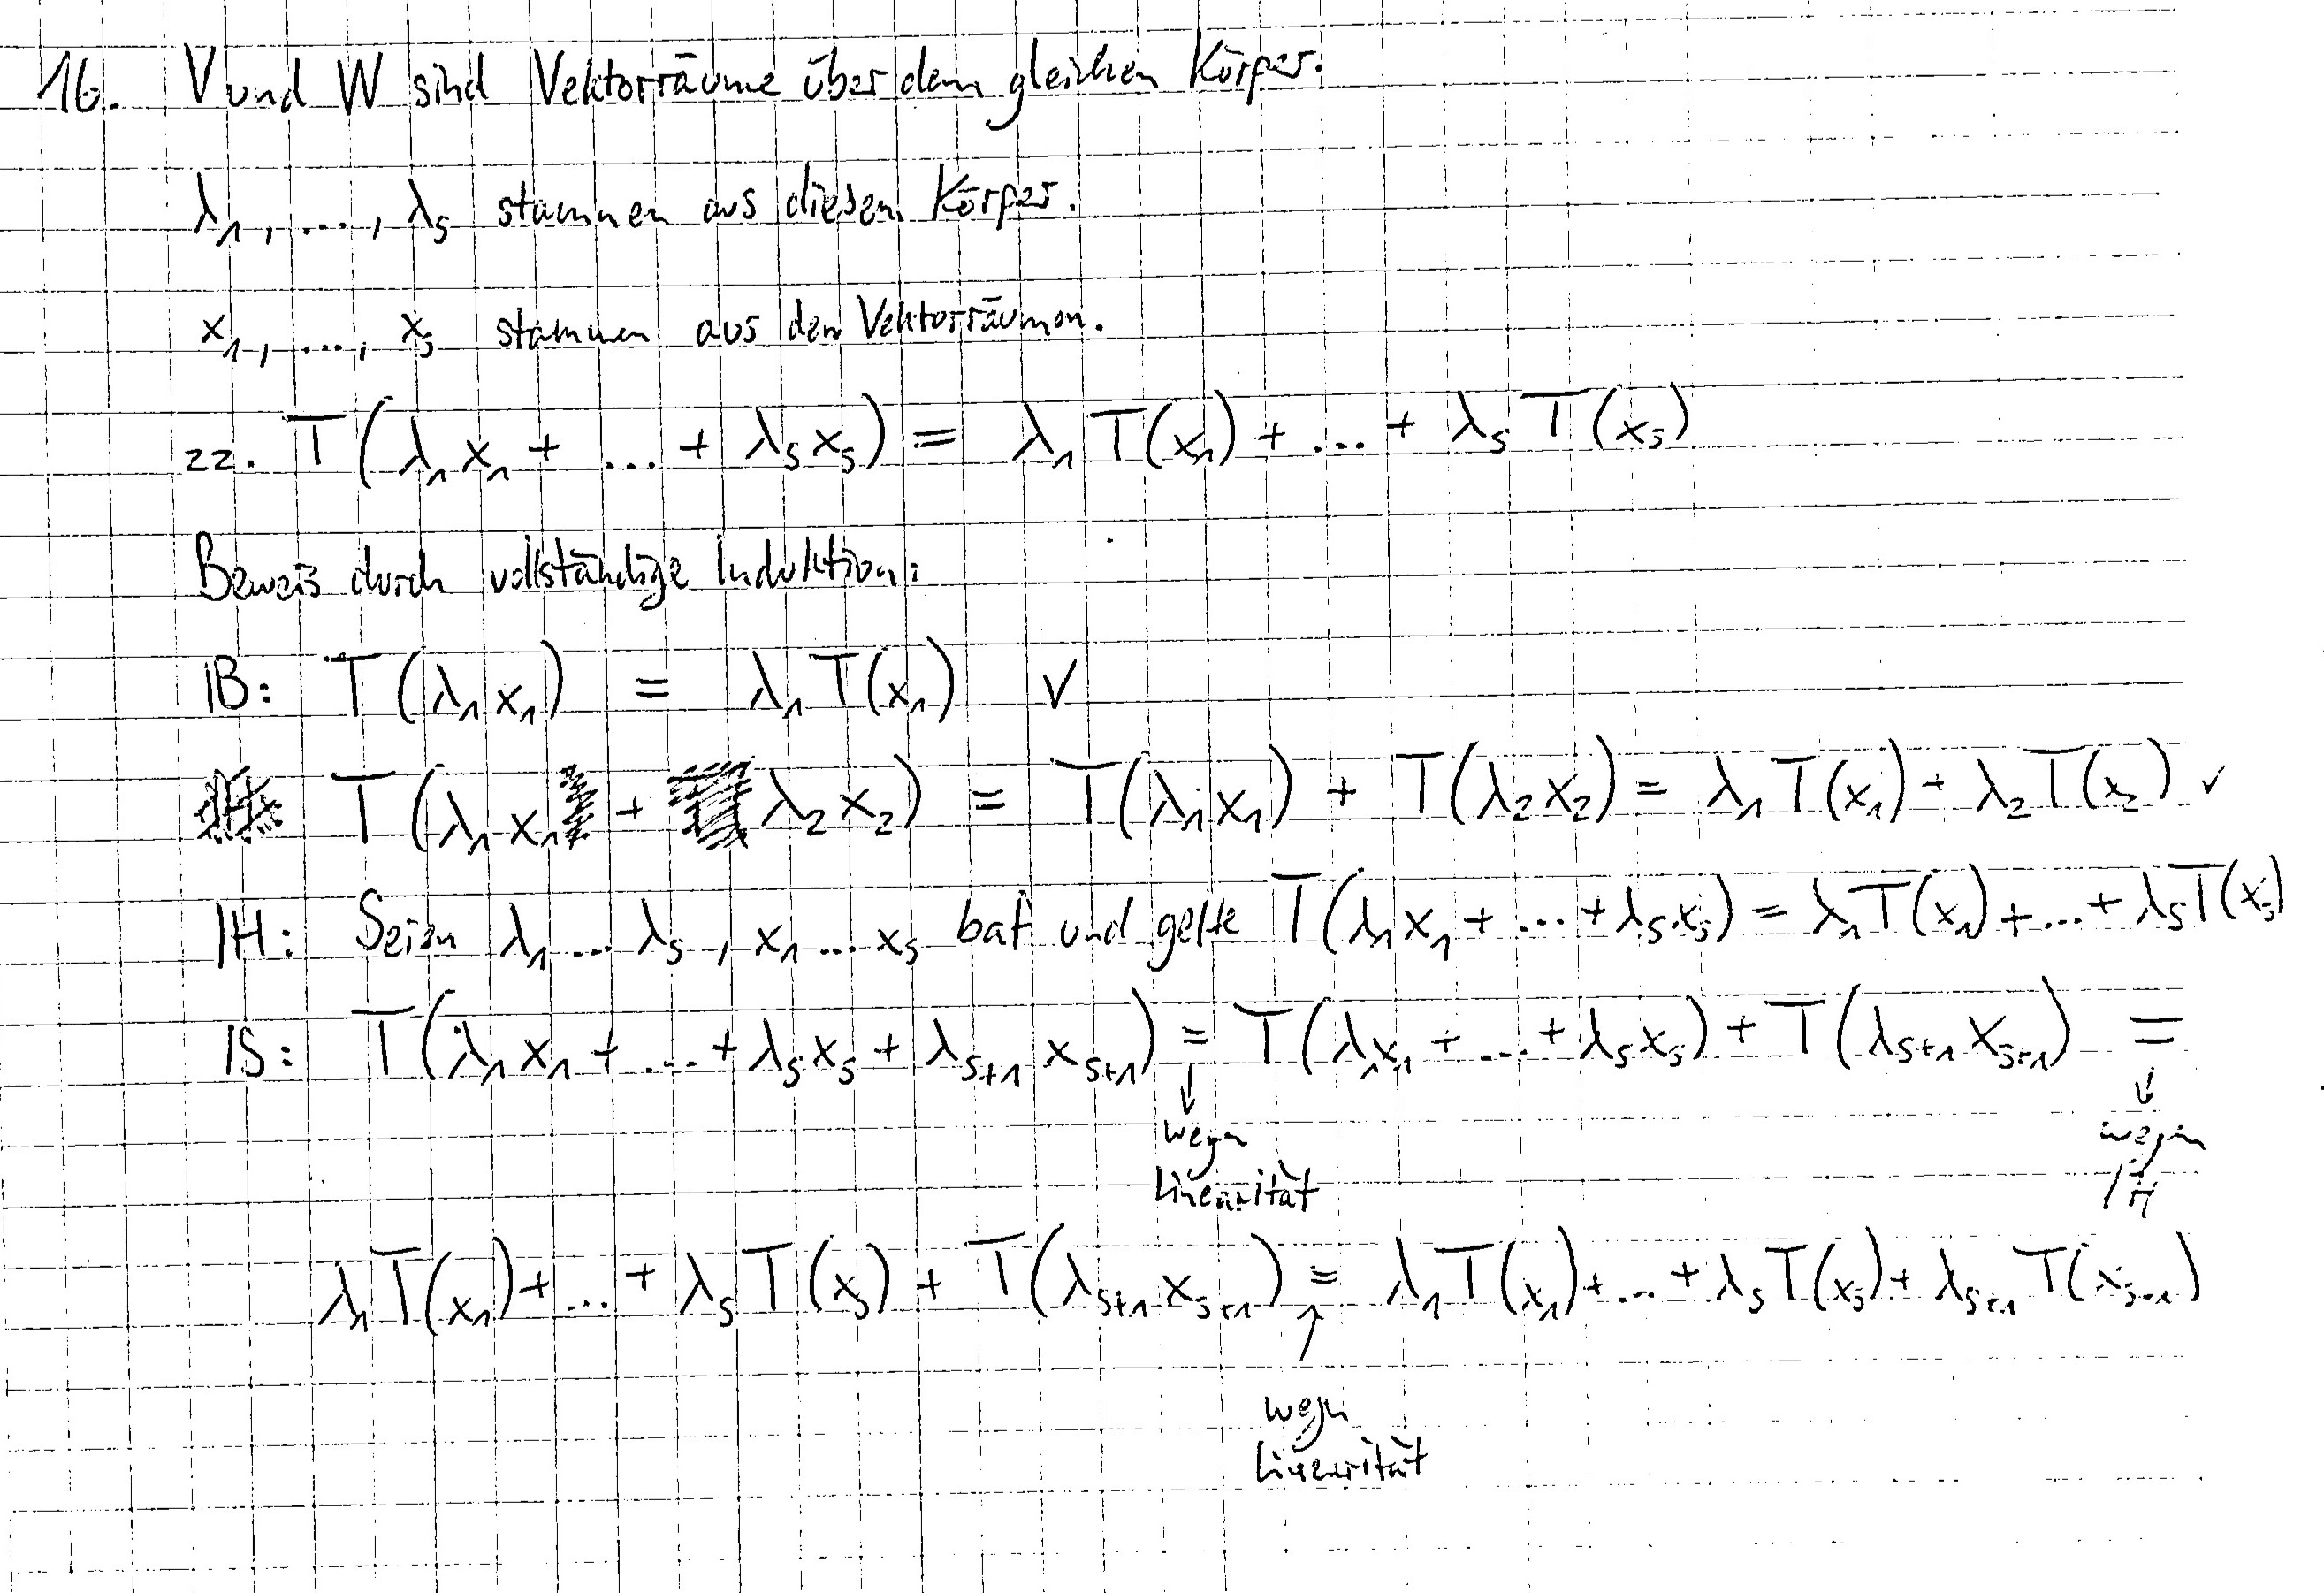 16. V und W sind Vektorräume über dem gleichen Körper.
λ₁, ..., λₛ stammen aus diesem Körper.
x₁, ..., xₛ stammen aus den Vektorräumen.
zz. T(λ₁x₁ + ... + λₛxₛ) = λ₁T(x₁) + ... + λₛT(xₛ)
Beweis durch vollständige Induktion:
IB: T(λ₁x₁) = λ₁T(x₁) ✓
T(λ₁x₁ + λ₂x₂) = T(λ₁x₁) + T(λ₂x₂) = λ₁T(x₁) + λ₂T(x₂) ✓
IH: Seien λ₁...λₛ, x₁...xₛ bel und gelte T(λ₁x₁ + ... + λₛxₛ) = λ₁T(x₁) + ... + λₛT(xₛ)
IS: T(λ₁x₁ + ... + λₛxₛ + λₛ₊₁xₛ₊₁) = T(λ₁x₁ + ... + λₛxₛ) + T(λₛ₊₁xₛ₊₁) =
↓ ↓
wegen wegen
Linearität IH
λ₁T(x₁) + ... + λₛT(xₛ) + T(λₛ₊₁xₛ₊₁) = λ₁T(x₁) + ... + λₛT(xₛ) + λₛ₊₁T(xₛ₊₁)
↑
wegen
Linearität